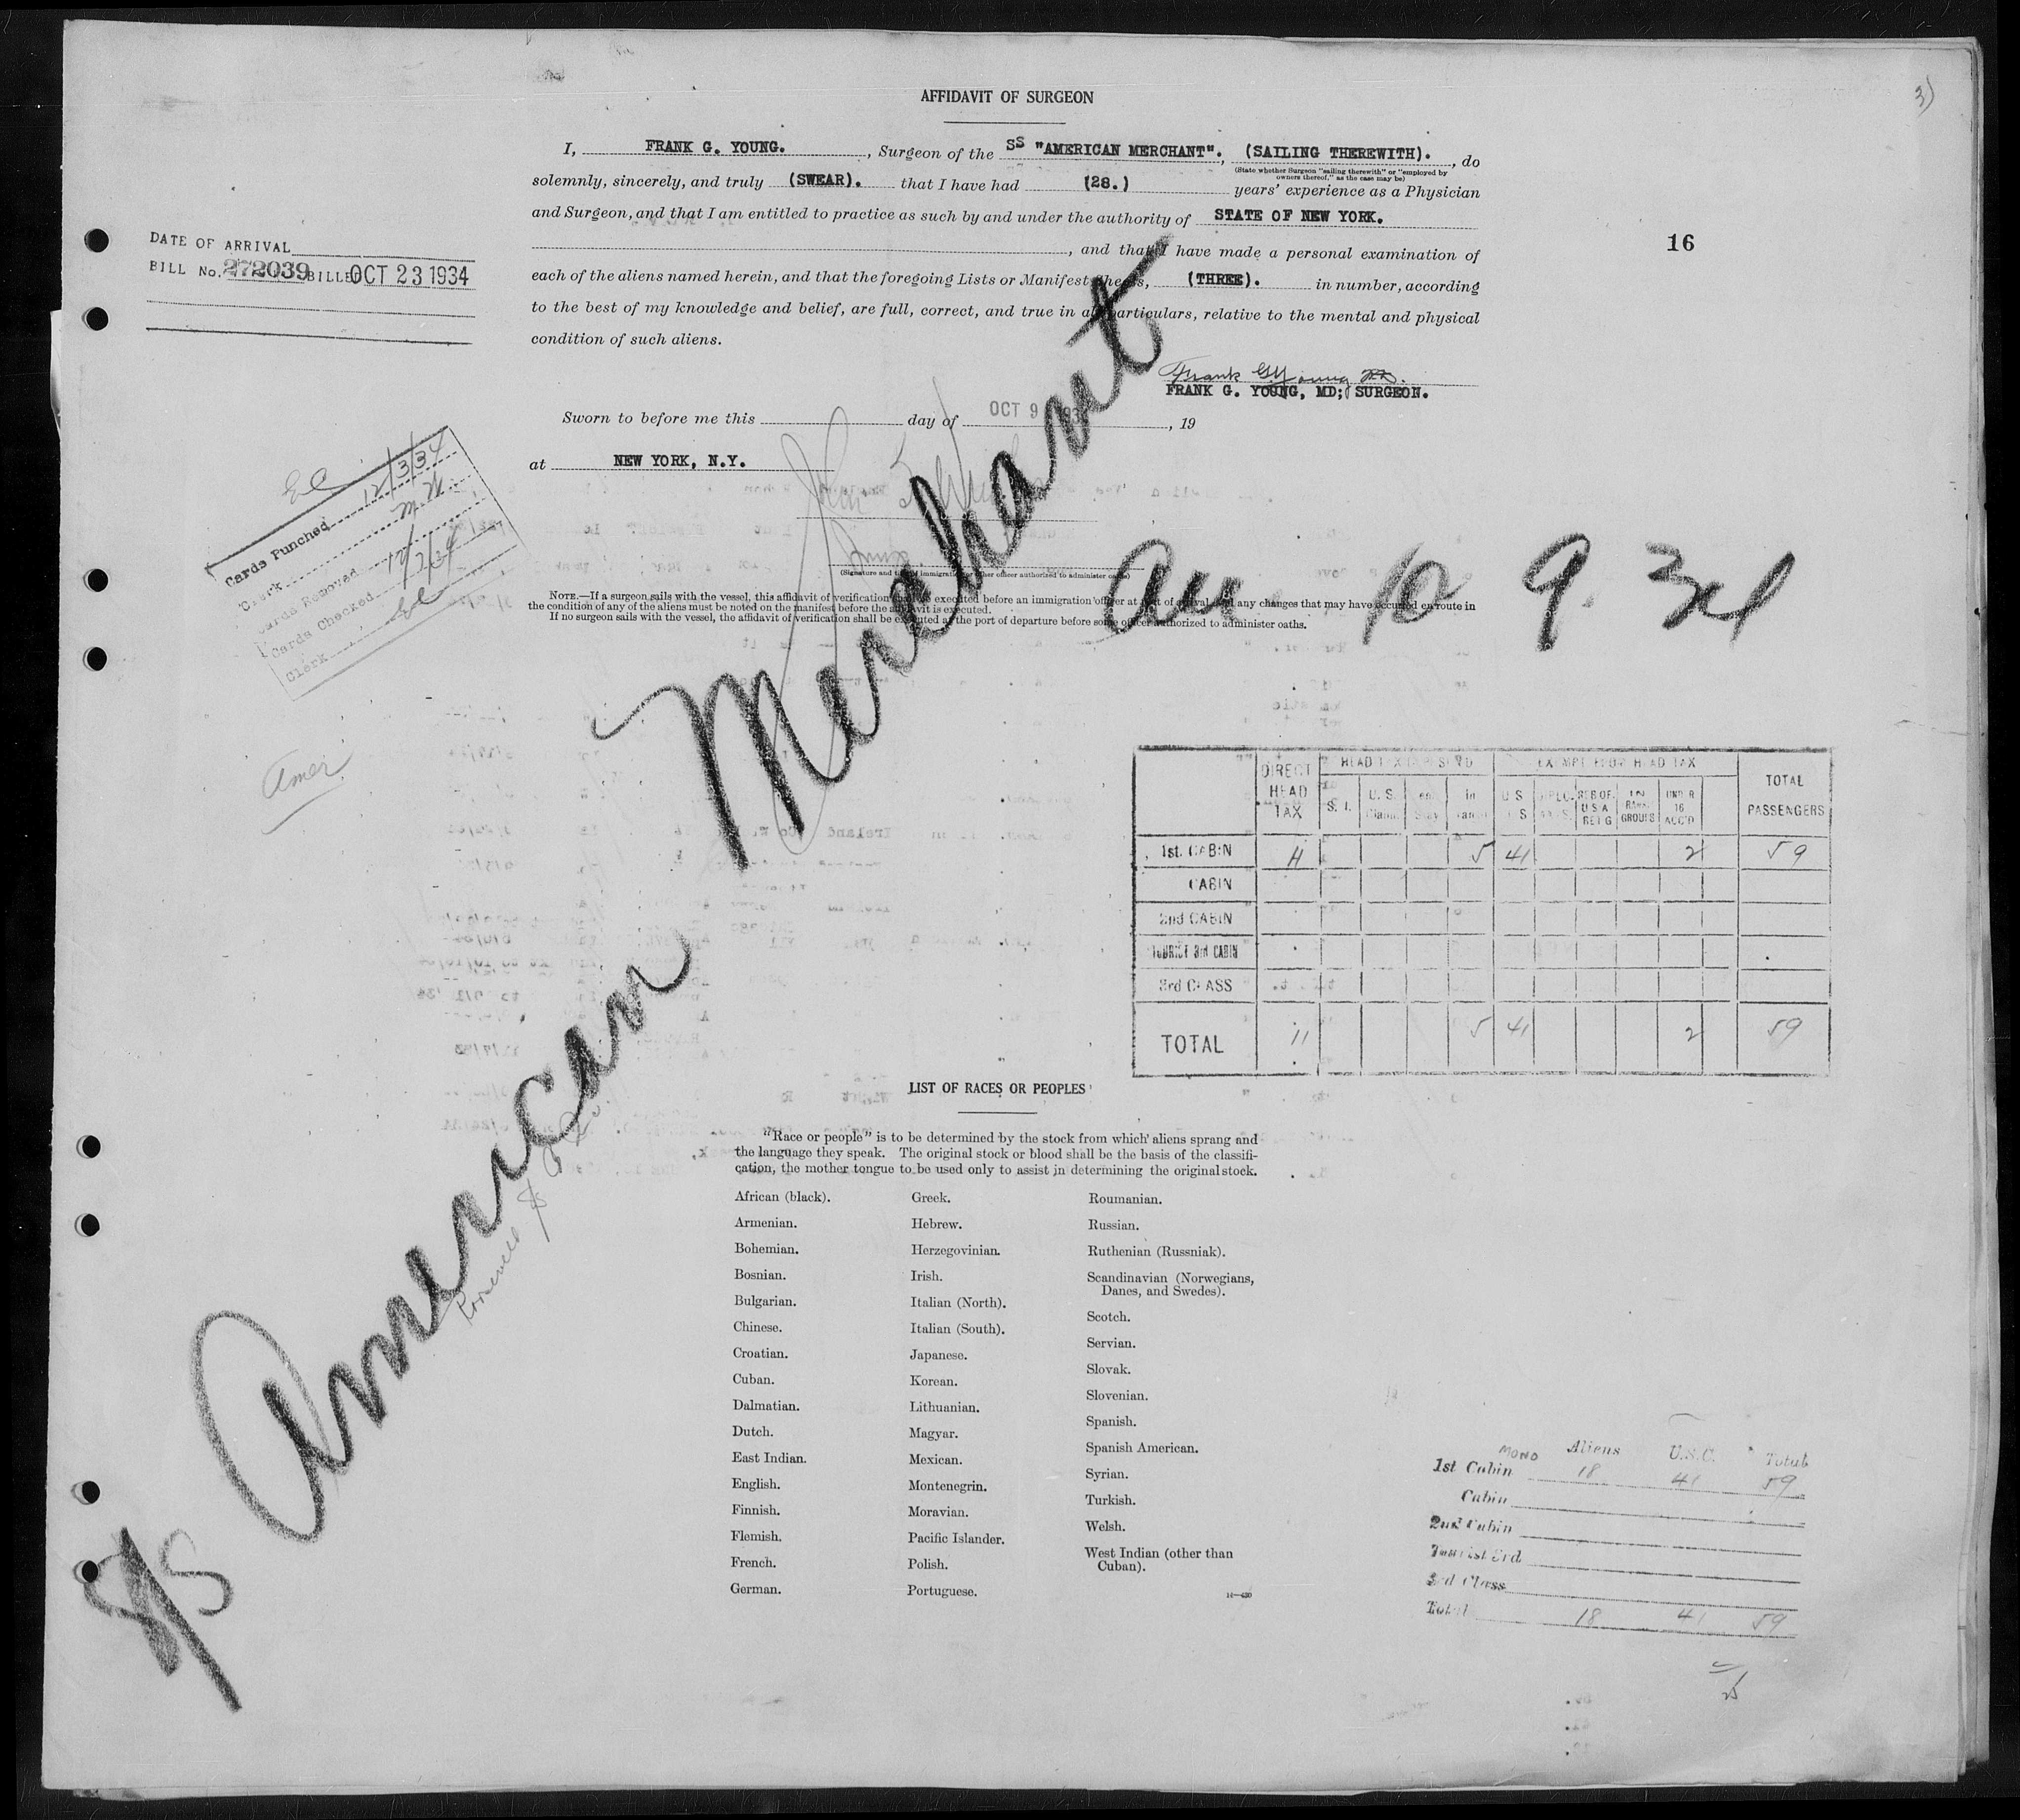 3)
AFFIDAVIT OF SURGEON
I, FRANK G. YOUNG. , Surgeon of the SS "AMERICAN MERCHANT". , (SAILING THEREWITH). , do
(State whether Surgeon "sailing therewith" or "employed by
owners thereof," as the case may be)
solemnly, sincerely, and truly (SWEAR). that I have had (28.) years' experience as a Physician
and Surgeon, and that I am entitled to practice as such by and under the authority of STATE OF NEW YORK.
, and that I have made a personal examination of
each of the aliens named herein, and that the foregoing Lists or Manifest Sheets, (THREE). in number, according
to the best of my knowledge and belief, are full, correct, and true in all particulars, relative to the mental and physical
condition of such aliens.
16
DATE OF ARRIVAL
BILL No. 272039 BILLED OCT 23 1934
Frank G Young MD.
FRANK G. YOUNG, MD; SURGEON.
Sworn to before me this day of OCT 9 193 , 19
at NEW YORK, N.Y.
(Signature and title of immigration or other officer authorized to administer oaths)
NOTE.—If a surgeon sails with the vessel, this affidavit of verification shall be executed before an immigration officer at port of arrival and any changes that may have occurred en route in
the condition of any of the aliens must be noted on the manifest before the affidavit is executed.
If no surgeon sails with the vessel, the affidavit of verification shall be executed at the port of departure before some officer authorized to administer oaths.
Cards Punched 12/3/34
Clerk
Cards Removed
Cards Checked 12/7/34
Clerk
Amer
S/S American Merchant
Arr 10 9 34
DIRECT HEAD TAX
EXEMPT FROM HEAD TAX
TOTAL PASSENGERS
S. I.
1st. CABIN 11 5 41 2 59
CABIN
2nd CABIN
TOURIST 3rd CABIN
3rd CLASS
TOTAL 11 5 41 2 59
LIST OF RACES OR PEOPLES
"Race or people" is to be determined by the stock from which aliens sprang and
the language they speak. The original stock or blood shall be the basis of the classifi-
cation, the mother tongue to be used only to assist in determining the original stock.
African (black).
Armenian.
Bohemian.
Bosnian.
Bulgarian.
Chinese.
Croatian.
Cuban.
Dalmatian.
Dutch.
East Indian.
English.
Finnish.
Flemish.
French.
German.
Greek.
Hebrew.
Herzegovinian.
Irish.
Italian (North).
Italian (South).
Japanese.
Korean.
Lithuanian.
Magyar.
Mexican.
Montenegrin.
Moravian.
Pacific Islander.
Polish.
Portuguese.
Roumanian.
Russian.
Ruthenian (Russniak).
Scandinavian (Norwegians,
Danes, and Swedes).
Scotch.
Servian.
Slovak.
Slovenian.
Spanish.
Spanish American.
Syrian.
Turkish.
Welsh.
West Indian (other than
Cuban).
MONO Aliens U.S.C. Total
1st Cabin 18 41 59
Cabin
2nd Cabin
Tourist 3rd
3rd Class
Total 18 41 59